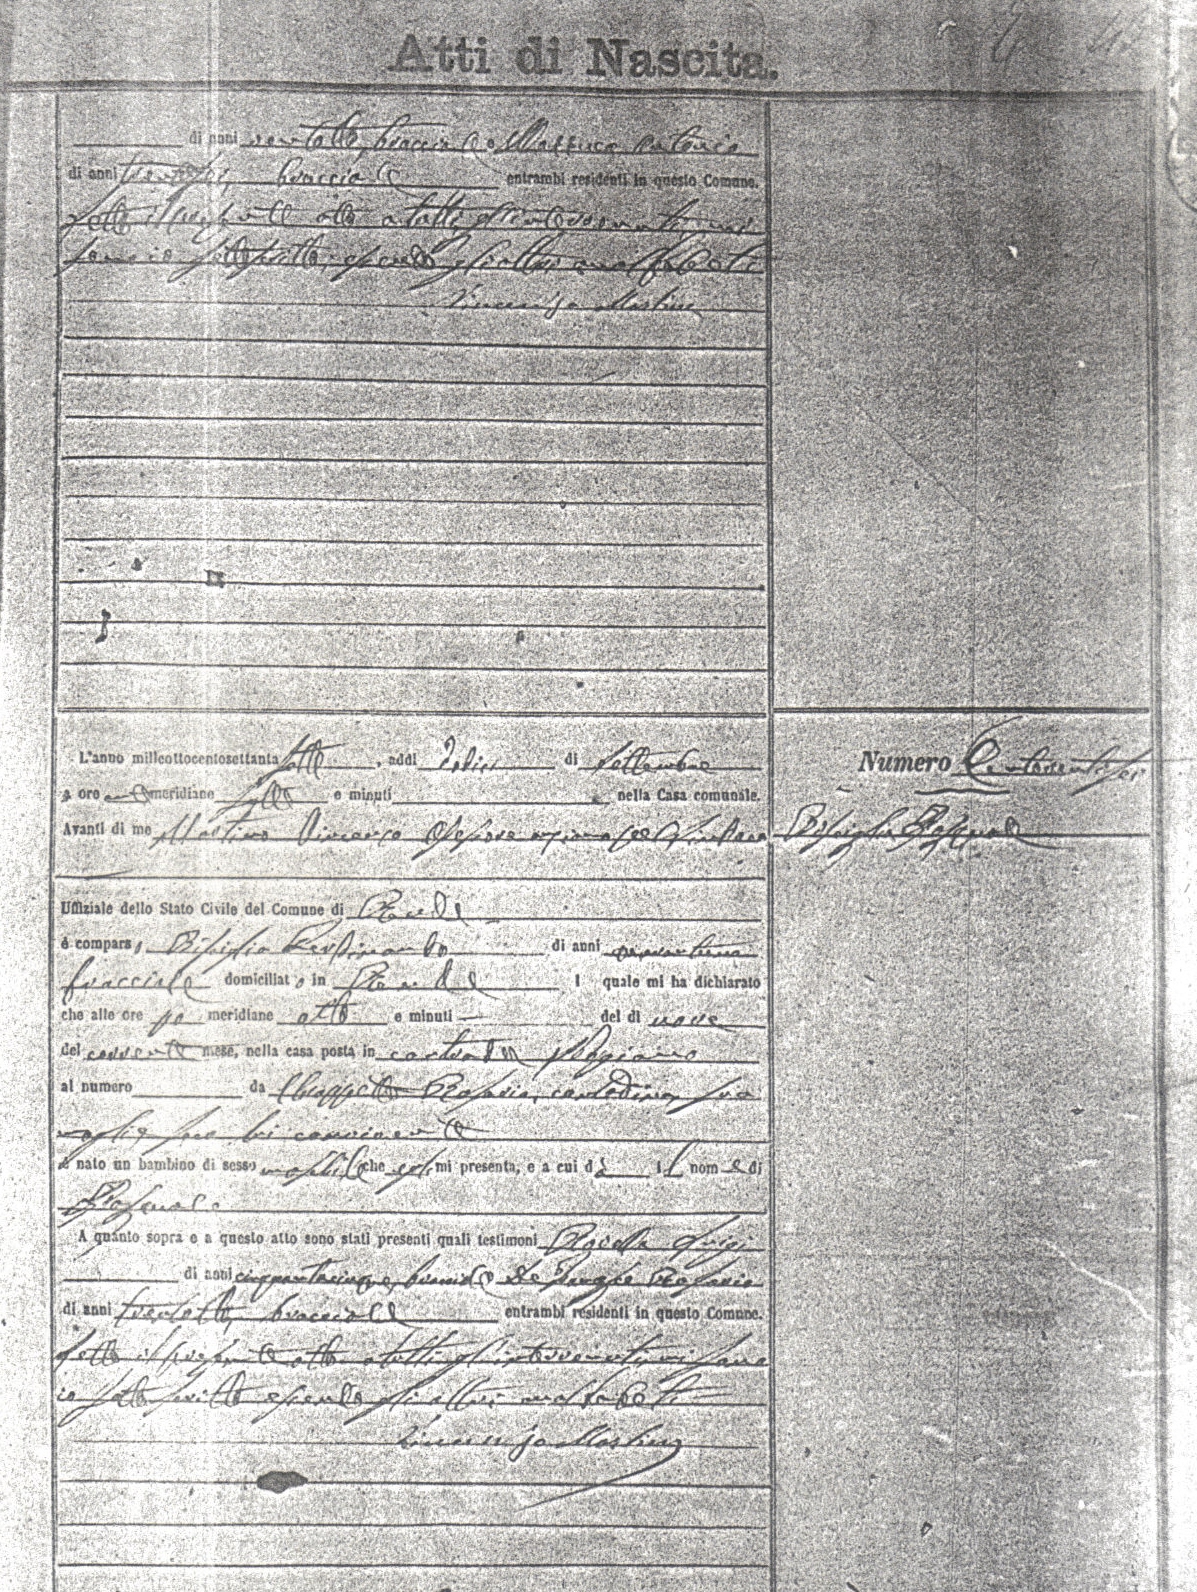 Atti di Nascita.
di anni ventotto, bracciale e Mazzuca Antonio
di anni trentasei, bracciale entrambi residenti in questo Comune.
Letto il presente atto a tutti gl'intervenuti, mi
sono io sottoscritto, essendo gli altri analfabeti
Vincenzo Martino
L'anno millottocentosettantasette, addì dodici di Settembre
a ore antimeridiane sette e minuti nella Casa comunale.
Numero Centoventisei
Avanti di me Martino Vincenzo Assessore anziano pel Sindaco
Bisciglia Pasquale
Uffiziale dello Stato Civile del Comune di Rende
è comparso Bisciglia Ferdinando di anni
bracciale domiciliato in Rende il quale mi ha dichiarato
che alle ore po meridiane otto e minuti del dì nove
del corrente mese, nella casa posta in contrada
al numero da Chiappetta Rosaria, contadina, sua
moglie seco lui convivente
è nato un bambino di sesso maschile che egli mi presenta, e a cui dà il nome di
Pasquale
A quanto sopra e a questo atto sono stati presenti quali testimoni Luigi
di anni cinquantacinque, bracciale e De Rosario
di anni trentotto, bracciale entrambi residenti in questo Comune.
Letto il presente atto a tutti gl'intervenuti mi sono
io sottoscritto essendo gli altri analfabeti
Vincenzo Martino